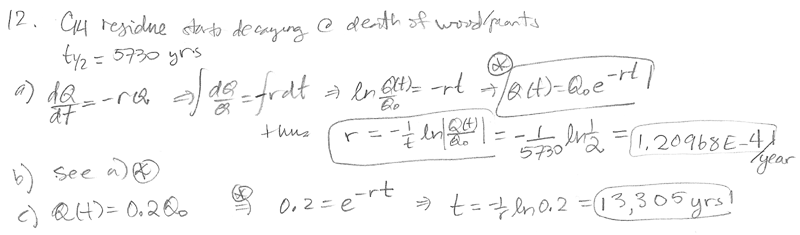 12. C14 residue starts decaying @ death of wood/plants
t1/2 = 5730 yrs
a) dQ/dt = -rQ ⇒ ∫ dQ/Q = ∫-rdt ⇒ ln Q(t)/Q₀ = -rt → ⊛ Q(t) = Q₀e^-rt
thus r = -1/t ln|Q(t)/Q₀| = -1/5730 ln 1/2 = 1.20968E-4/year
b) see a) ⊛
c) Q(t) = 0.2Q₀ ⊛⇒ 0.2 = e^-rt ⇒ t = -1/r ln 0.2 = 13,305 yrs